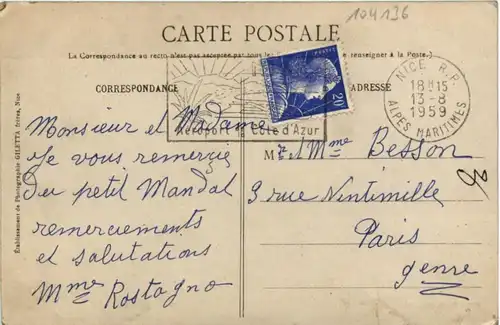 104136
CARTE POSTALE
La Correspondance au recto n'est pas acceptée par tous les renseigner à la Poste.)
CORRESPONDANCE
ADRESSE
NICE R.P.
18H15
13-8
1959
ALPES MARITIMES
POSTES
20F
Aéroport Côte d'Azur
Monsieur et Madame
Je vous remercie
du petit Mandat
remerciements
et salutations
Mme Rostagno
M. et Mme Besson
3 rue Ventimille
Paris
9e
Etablissement de Photographie GILETTA frères, Nice